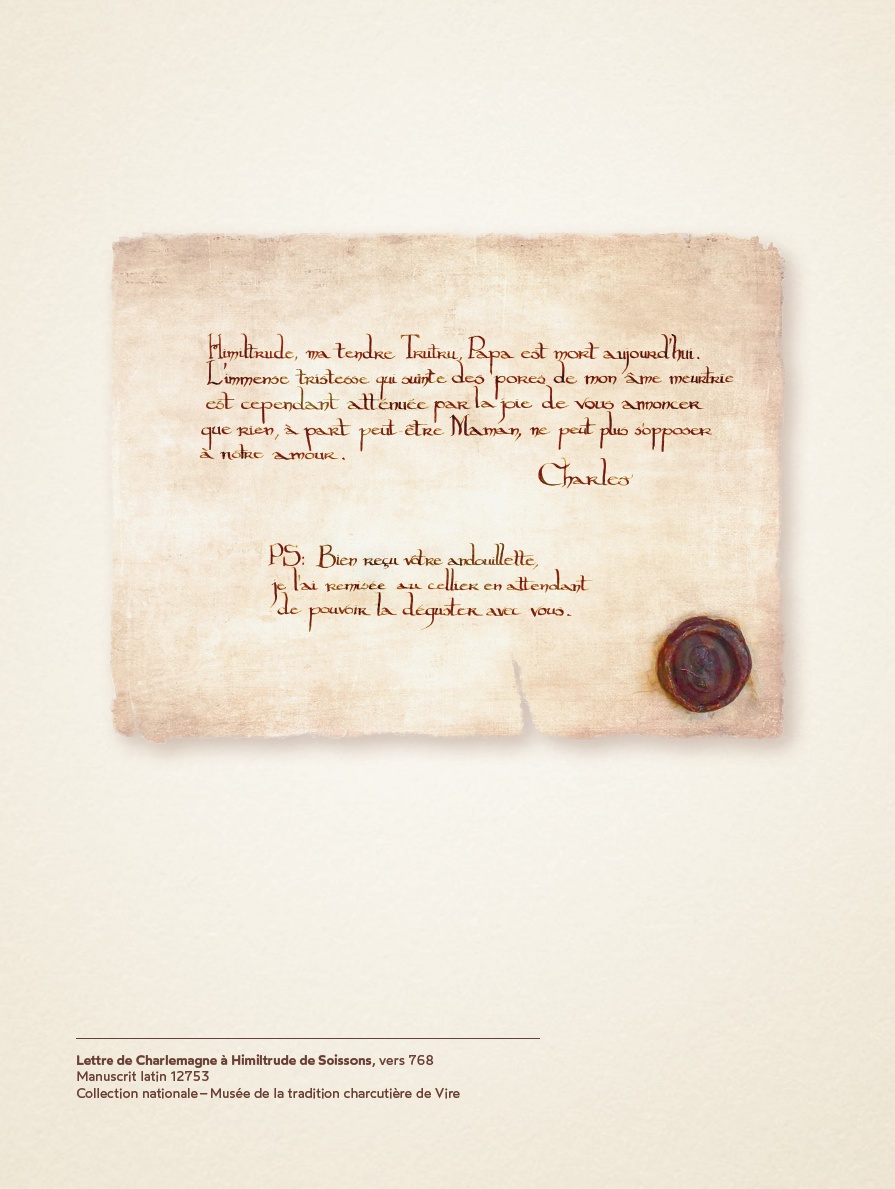 Himiltrude, ma tendre Trutru, Papa est mort aujourd'hui.
L'immense tristesse qui suinte des pores de mon âme meurtrie
est cependant atténuée par la joie de vous annoncer
que rien, à part peut être Maman, ne peut plus s'opposer
à nôtre amour.
Charles
PS: Bien reçu vôtre andouillette,
je l'ai remisée au cellier en attendant
de pouvoir la déguster avec vous.
Lettre de Charlemagne à Himiltrude de Soissons, vers 768
Manuscrit latin 12753
Collection nationale – Musée de la tradition charcutière de Vire